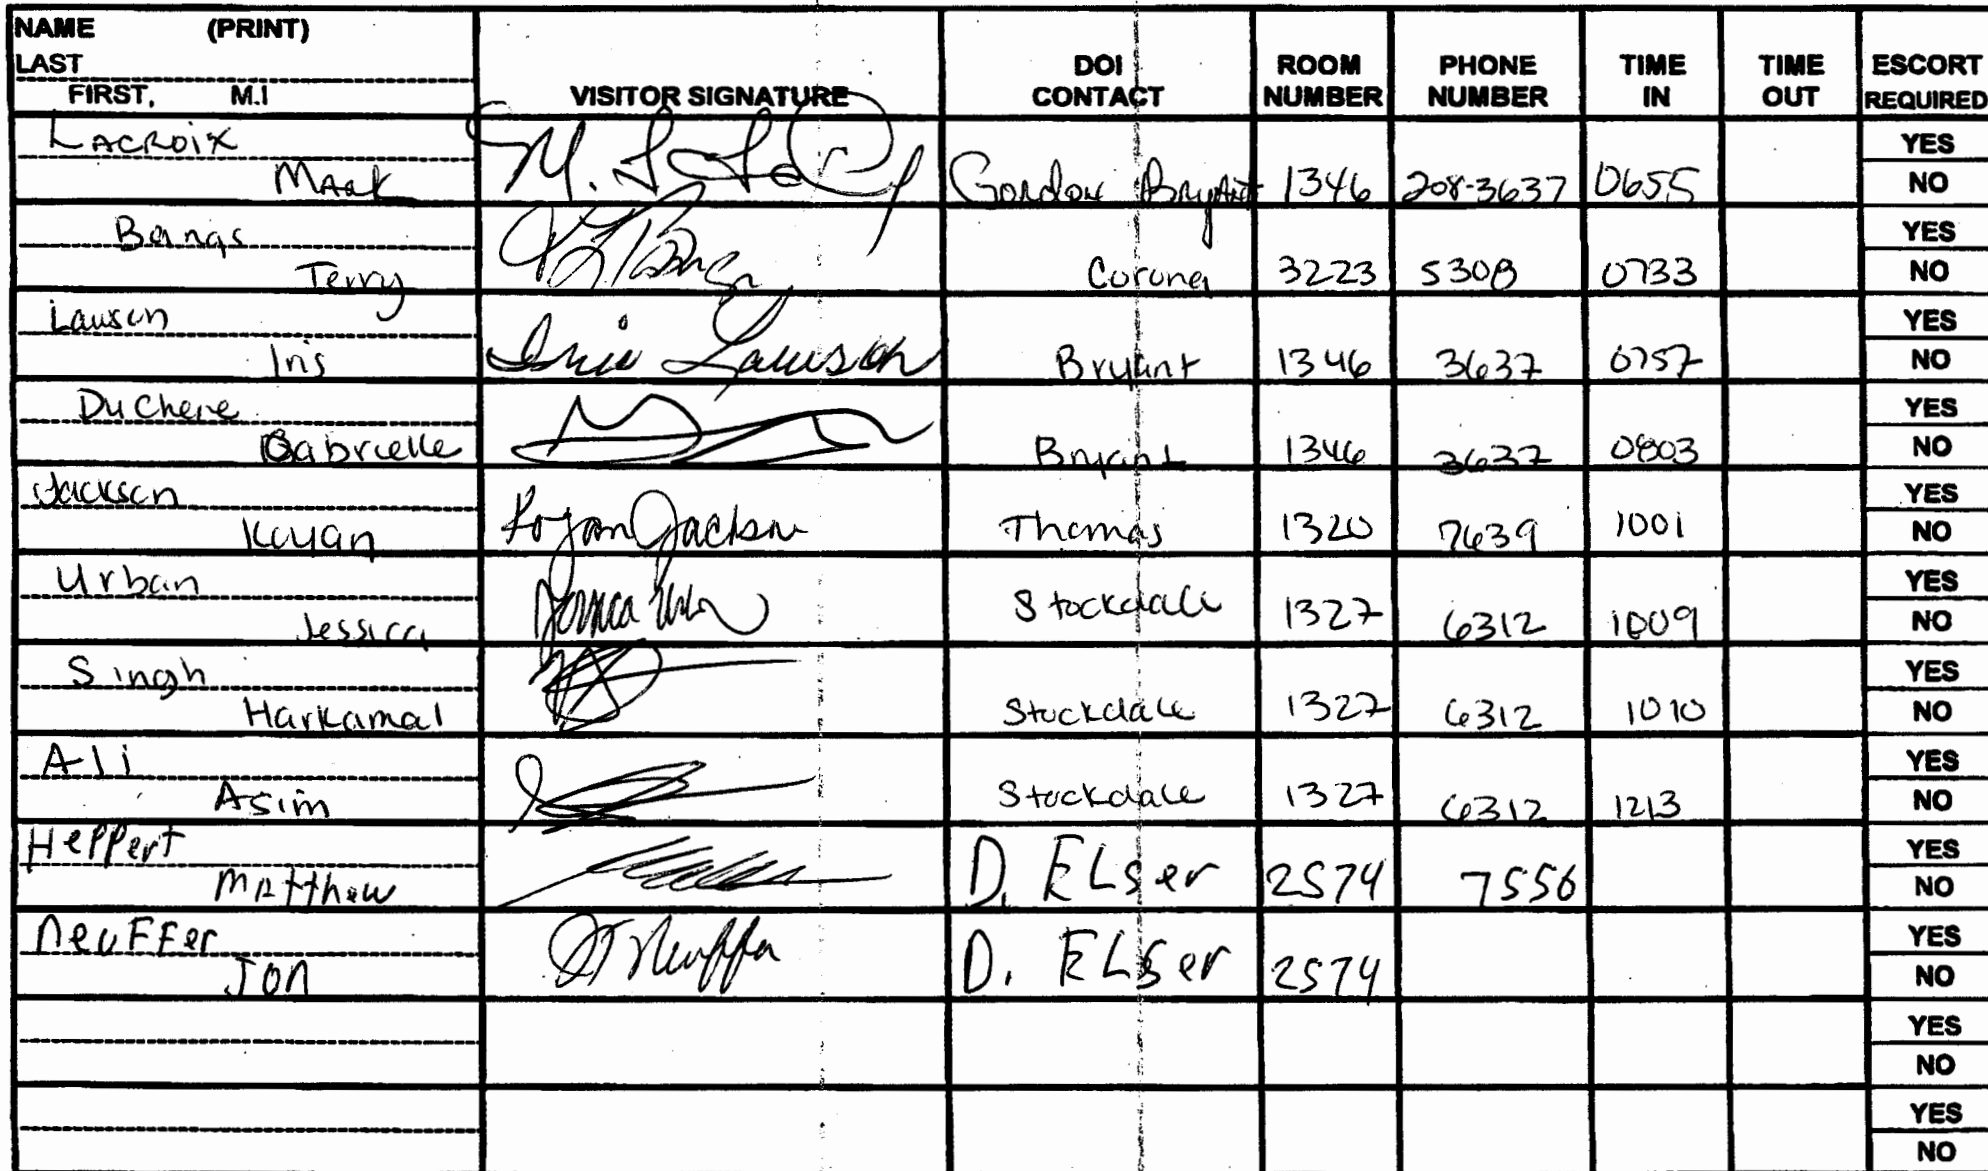 NAME (PRINT)
LAST
FIRST, M.I
VISITOR SIGNATURE
DOI CONTACT
ROOM NUMBER
PHONE NUMBER
TIME IN
TIME OUT
ESCORT REQUIRED
Lacroix
Mark Gordon Bryant 1346 208-3637 0655
YES
NO
Bangs
Terry Corona 3223 5308 0733
YES
NO
Lawson
Iris Iris Lawson Bryant 1346 3637 0757
YES
NO
DuChene
Gabrielle Bryant 1346 3637 0803
YES
NO
Jackson
Koyan Koyan Jackson Thomas 1320 7639 1001
YES
NO
Urban
Jessica Stockdale 1327 6312 1009
YES
NO
Singh
Harkamal Stockdale 1327 6312 1010
YES
NO
Ali
Asim Stockdale 1327 6312 1213
YES
NO
Heppert
Matthew D. ELser 2574 7556
YES
NO
neuFFer
Jon D. ELser 2574
YES
NO
YES
NO
YES
NO